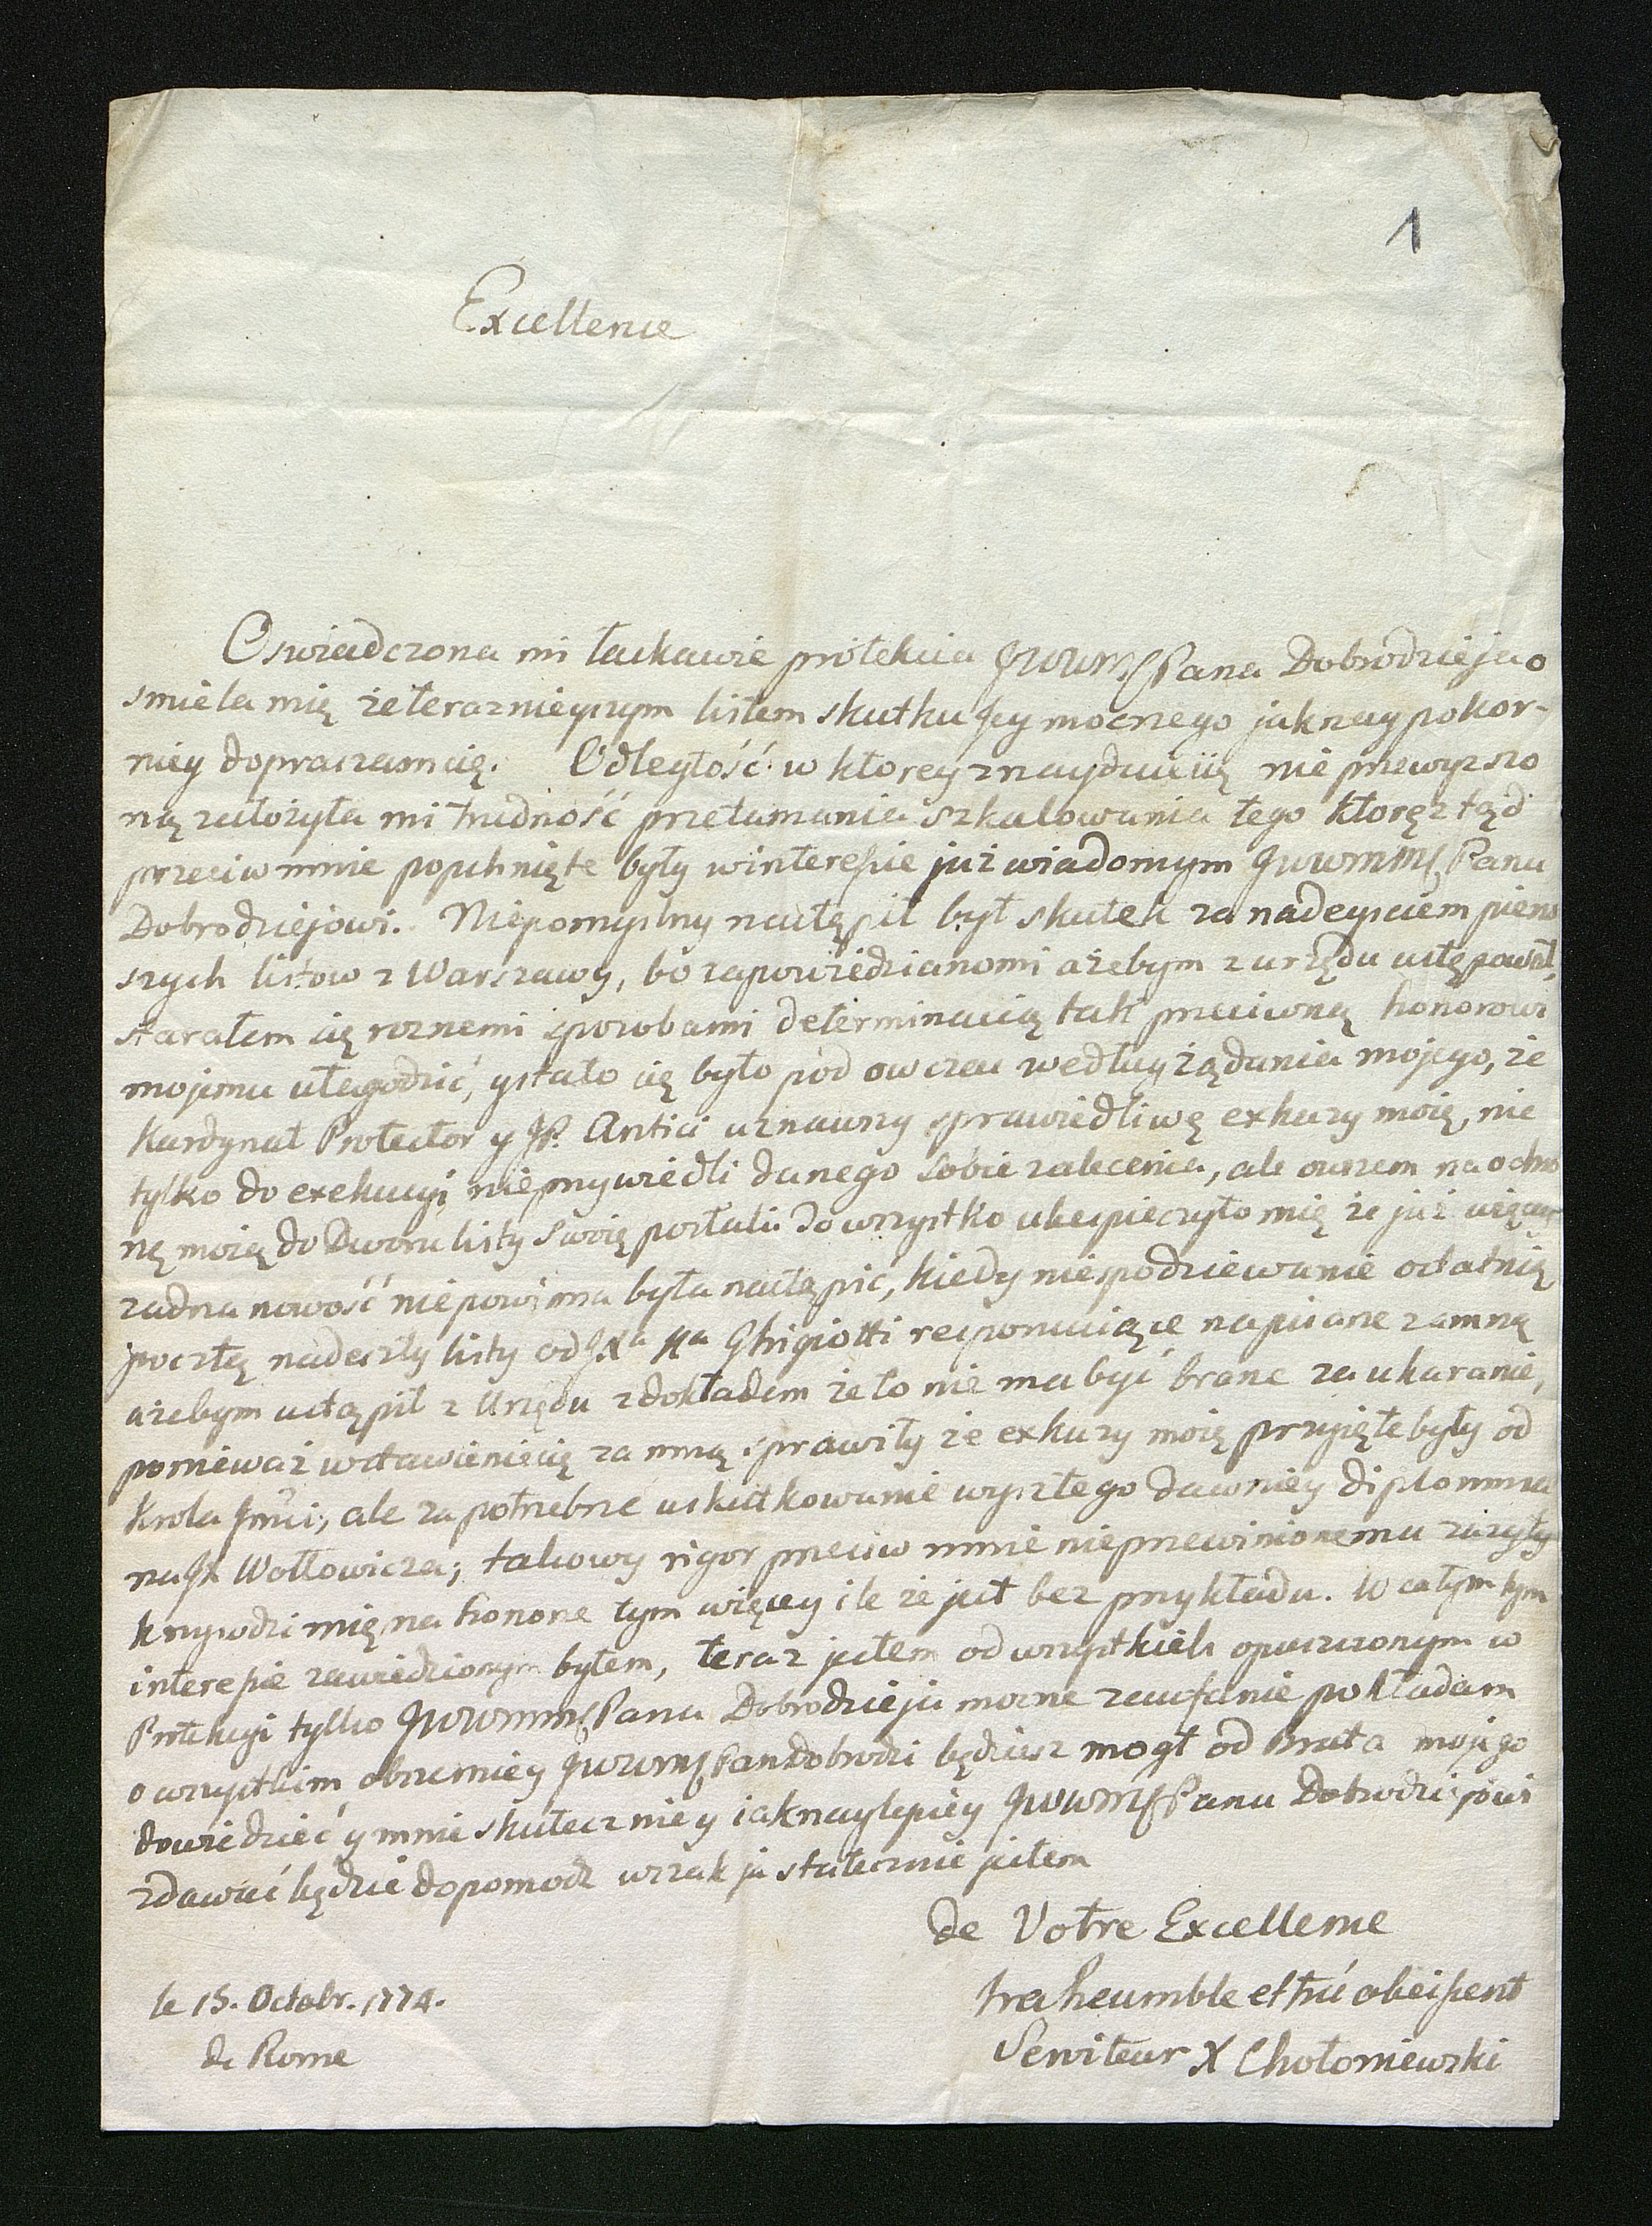 1
Excellence
Oswiadczona mi łaskawie protekcia JWWMPana Dobrodzieja o
smiela mię że terazniejszym listem skutku Jey mocnego jaknaypokor-
niey dopraszam się. Odległość w ktorey znayduię się nieprzewyzszo
ną założyła mi trudność przełamania szkalowania tego ktore ztąd
przeciw mnie popchnięte były w interessie już wiadomym JWWMMPanu
Dobrodziejowi. Niepomyslny nastąpił był skutek za nadeysciem pierw
szych listow z Warszawy, bo zapowiedziano mi ażebym z urzędu ustępował,
starałem się roznemi sposobami determinacią tak przeciwną honorowi
mojemu ułagodzić, y stało się było pod ow czas według żądania mojego, że
Kardynał Protector y JP. Antici uznawszy sprawiedliwę exkuzy moię, nie
tylko do exekucyi nieprzywiedli danego sobie zalecenia, ale owszem na obro
nę moią do Dworu listy swoię posłali. To wszystko ubespieczyło mię że już więcey
zadna nowość niepowinna była nastąpić, kiedy niespodziewanie ostatnią
pocztą nadeszły listy od JXa Ka Ghigiotti responsuiące na pisane za mną
ażebym ustąpił z Urzędu z dokładem że to nie ma być brane za ukaranie,
ponieważ wstawienie się za mną sprawiły że exkuzy moię przyięte były od
Krola Jmci, ale za potrzebne uskutkowanie wyszłego dawniey diplomma
na JX Wołłowicza; takowy rigor przeciw mnie nieprzewinionemu zażyty
krzywdzi mię na honorze tym więcey ile że jest bez przykładu. W całym tym
interesie zawiedzionym byłem, teraz jestem od wszystkich opuszczonym w
Protekcyi tylko JWWMMPana Dobrodzieja mocne zaufanie pokładam
o wszystkim obszerniey JWWMPan Dobrodzi będziesz mogł od Brata mojego
dowiedzieć y mnie skuteczniey iak naylepiey JWWMPanu Dobrodziejowi
zdawać będzie dopomodz wszak ja statecznie jestem
de Votre Excellence
tres heumble et tres obeissent
Serviteur X Chołoniewski
le 15. Octobr. 1774.
de Rome